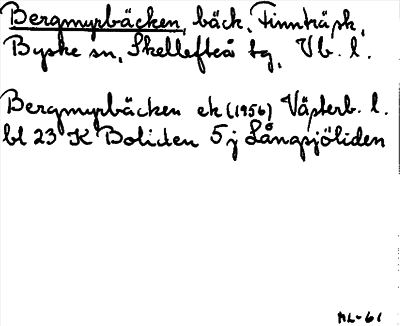 Bergmyrbäcken, bäck, Finnträsk,
Byske sn, Skellefteå tg, Vb. l.
Bergmyrbäcken ek (1956) Västerb. l.
bl 23 K Boliden 5 j Långsjöliden
NL-61